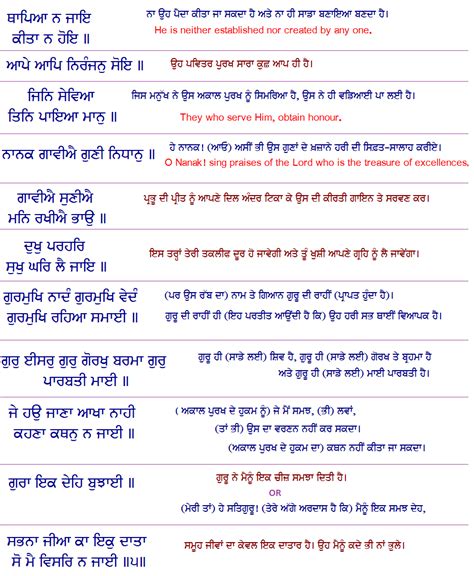 ਥਾਪਿਆ ਨ ਜਾਇ
ਕੀਤਾ ਨ ਹੋਇ ॥
ਨਾ ਉਹ ਪੈਦਾ ਕੀਤਾ ਜਾ ਸਕਦਾ ਹੈ ਅਤੇ ਨਾ ਹੀ ਸਾਡਾ ਬਣਾਇਆ ਬਣਦਾ ਹੈ।
He is neither established nor created by any one.
ਆਪੇ ਆਪਿ ਨਿਰੰਜਨੁ ਸੋਇ ॥
ਉਹ ਪਵਿਤਰ ਪੁਰਖ ਸਾਰਾ ਕੁਛ ਆਪ ਹੀ ਹੈ।
ਜਿਨਿ ਸੇਵਿਆ
ਤਿਨਿ ਪਾਇਆ ਮਾਨੁ ॥
ਜਿਸ ਮਨੁੱਖ ਨੇ ਉਸ ਅਕਾਲ ਪੁਰਖ ਨੂੰ ਸਿਮਰਿਆ ਹੈ, ਉਸ ਨੇ ਹੀ ਵਡਿਆਈ ਪਾ ਲਈ ਹੈ।
They who serve Him, obtain honour.
ਨਾਨਕ ਗਾਵੀਐ ਗੁਣੀ ਨਿਧਾਨੁ ॥
ਹੇ ਨਾਨਕ! (ਆਓ) ਅਸੀਂ ਤੀ ਉਸ ਗੁਣਾਂ ਦੇ ਖ਼ਜ਼ਾਨੇ ਹਰੀ ਦੀ ਸਿਫ਼ਤ-ਸਾਲਾਹ ਕਰੀਏ।
O Nanak! sing praises of the Lord who is the treasure of excellences.
ਗਾਵੀਐ ਸੁਣੀਐ
ਮਨਿ ਰਖੀਐ ਭਾਉ ॥
ਪ੍ਰਭੂ ਦੀ ਪ੍ਰੀਤ ਨੂੰ ਆਪਣੇ ਦਿਲ ਅੰਦਰ ਟਿਕਾ ਕੇ ਉਸ ਦੀ ਕੀਰਤੀ ਗਾਇਨ ਤੇ ਸਰਵਣ ਕਰ।
ਦੁਖੁ ਪਰਹਰਿ
ਸੁਖੁ ਘਰਿ ਲੈ ਜਾਇ ॥
ਇਸ ਤਰ੍ਹਾਂ ਤੇਰੀ ਤਕਲੀਫ ਦੂਰ ਹੋ ਜਾਵੇਗੀ ਅਤੇ ਤੂੰ ਖੁਸ਼ੀ ਆਪਣੇ ਗ੍ਰਹਿ ਨੂੰ ਲੈ ਜਾਵੇਂਗਾ।
ਗੁਰਮੁਖਿ ਨਾਦੰ ਗੁਰਮੁਖਿ ਵੇਦੰ
ਗੁਰਮੁਖਿ ਰਹਿਆ ਸਮਾਈ ॥
(ਪਰ ਉਸ ਰੱਬ ਦਾ) ਨਾਮ ਤੇ ਗਿਆਨ ਗੁਰੂ ਦੀ ਰਾਹੀਂ (ਪ੍ਰਾਪਤ ਹੁੰਦਾ ਹੈ)।
ਗੁਰੂ ਦੀ ਰਾਹੀਂ ਹੀ (ਇਹ ਪਰਤੀਤ ਆਉਂਦੀ ਹੈ ਕਿ) ਉਹ ਹਰੀ ਸਭ ਥਾਈਂ ਵਿਆਪਕ ਹੈ।
ਗੁਰੁ ਈਸਰੁ ਗੁਰੁ ਗੋਰਖੁ ਬਰਮਾ ਗੁਰੁ
ਪਾਰਬਤੀ ਮਾਈ ॥
ਗੁਰੂ ਹੀ (ਸਾਡੇ ਲਈ) ਸ਼ਿਵ ਹੈ, ਗੁਰੂ ਹੀ (ਸਾਡੇ ਲਈ) ਗੋਰਖ ਤੇ ਬ੍ਰਹਮਾ ਹੈ
ਅਤੇ ਗੁਰੂ ਹੀ (ਸਾਡੇ ਲਈ) ਮਾਈ ਪਾਰਬਤੀ ਹੈ।
ਜੇ ਹਉ ਜਾਣਾ ਆਖਾ ਨਾਹੀ
ਕਹਣਾ ਕਥਨੁ ਨ ਜਾਈ ॥
( ਅਕਾਲ ਪੁਰਖ ਦੇ ਹੁਕਮ ਨੂੰ) ਜੇ ਮੈਂ ਸਮਝ, (ਭੀ) ਲਵਾਂ,
(ਤਾਂ ਭੀ) ਉਸ ਦਾ ਵਰਣਨ ਨਹੀਂ ਕਰ ਸਕਦਾ।
(ਅਕਾਲ ਪੁਰਖ ਦੇ ਹੁਕਮ ਦਾ) ਕਥਨ ਨਹੀਂ ਕੀਤਾ ਜਾ ਸਕਦਾ।
ਗੁਰਾ ਇਕ ਦੇਹਿ ਬੁਝਾਈ ॥
ਗੁਰੂ ਨੇ ਮੈਨੂੰ ਇਕ ਚੀਜ਼ ਸਮਝਾ ਦਿਤੀ ਹੈ।
OR
(ਮੇਰੀ ਤਾਂ) ਹੇ ਸਤਿਗੁਰੂ! (ਤੇਰੇ ਅੱਗੇ ਅਰਦਾਸ ਹੈ ਕਿ) ਮੈਨੂੰ ਇਕ ਸਮਝ ਦੇਹ,
ਸਭਨਾ ਜੀਆ ਕਾ ਇਕੁ ਦਾਤਾ
ਸੋ ਮੈ ਵਿਸਰਿ ਨ ਜਾਈ ॥੫॥
ਸਮੂਹ ਜੀਵਾਂ ਦਾ ਕੇਵਲ ਇਕ ਦਾਤਾਰ ਹੈ। ਉਹ ਮੈਨੂੰ ਕਦੇ ਭੀ ਨਾਂ ਭੁਲੇ।